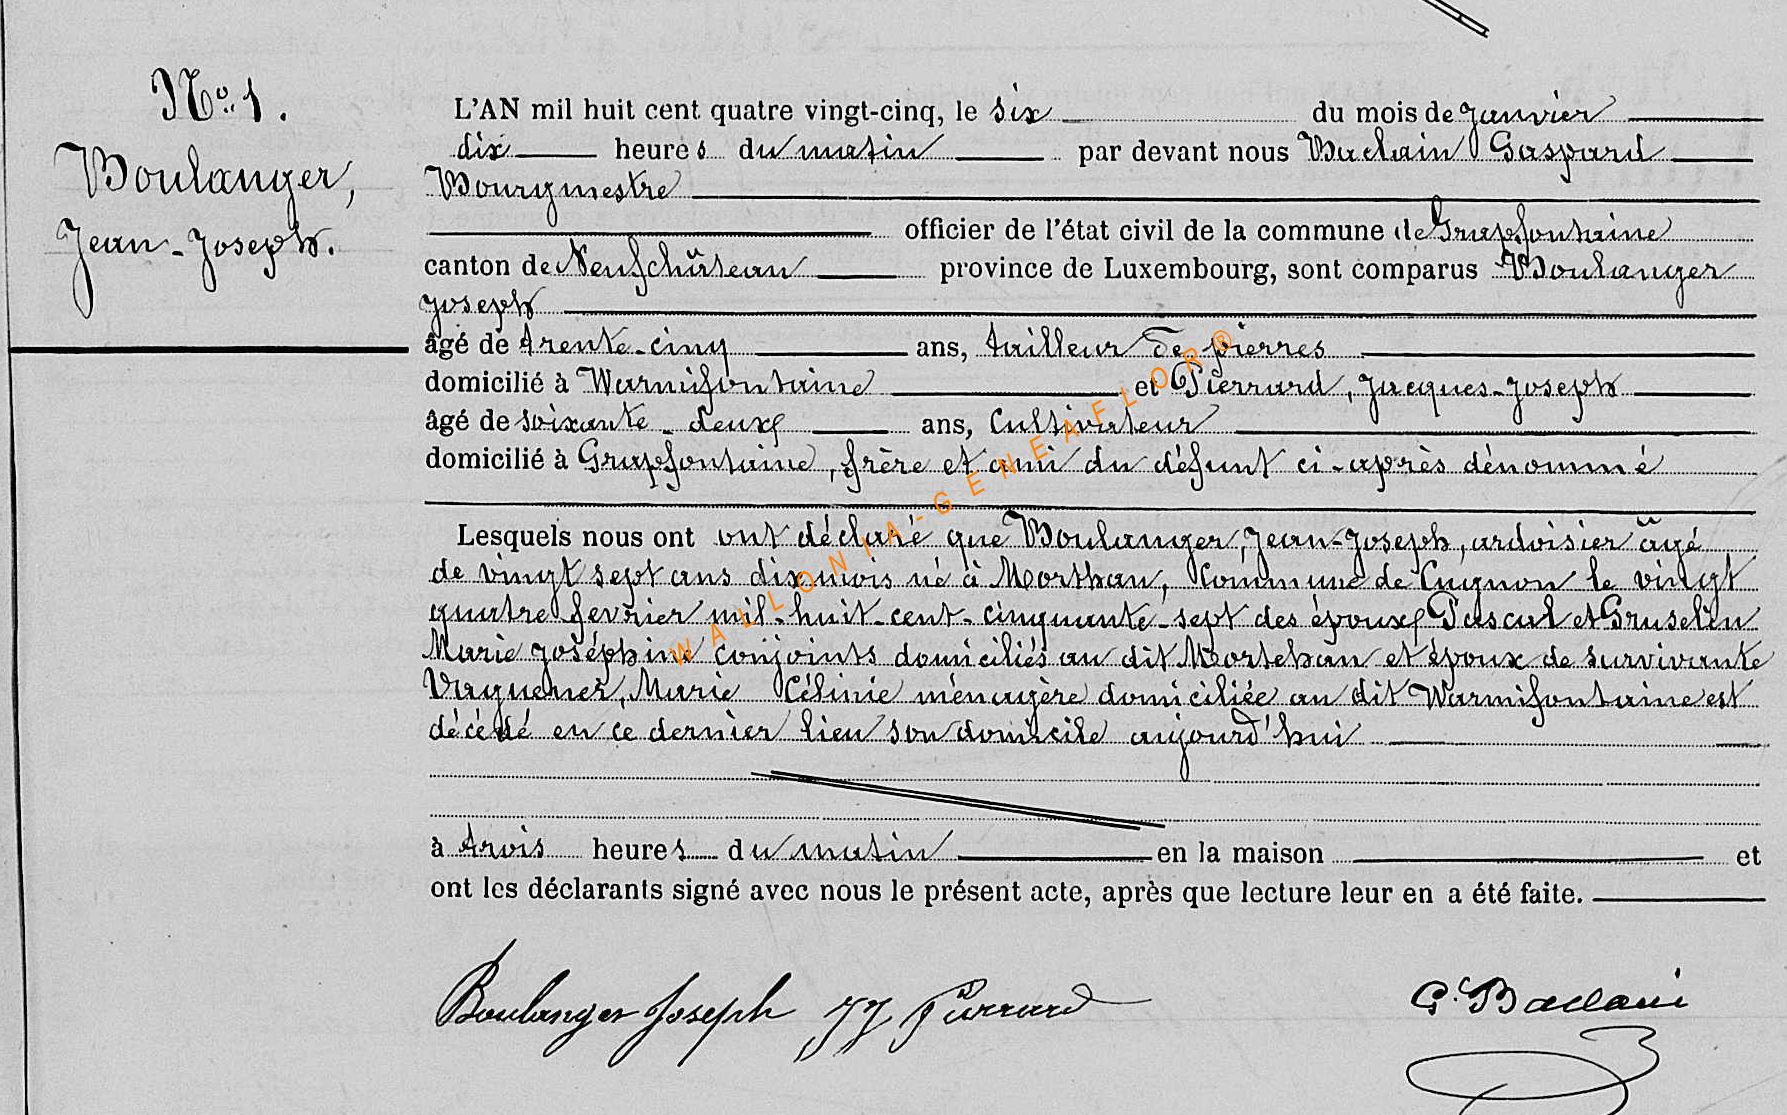 No. 1.
Boulanger,
Jean-Joseph.
L'AN mil huit cent quatre vingt-cinq, le six du mois de Janvier
dix heures du matin par devant nous Baclain Gaspard
Bourgmestre
officier de l'état civil de la commune de Grapfontaine
canton de Neufchâteau province de Luxembourg, sont comparus Boulanger
Joseph
âgé de trente-cinq ans, tailleur de pierres
domicilié à Warmifontaine et Pierrard, Jacques-Joseph
âgé de soixante-deux ans, Cultivateur
domicilié à Grapfontaine, frère et ami du défunt ci-après dénommé
Lesquels nous ont ont déclaré que Boulanger, Jean-Joseph, ardoisier âgé
de vingt sept ans dix mois né à Morthan, Commune de Cugnon le vingt
quatre fevrier mil-huit-cent-cinquante-sept des époux Pascal et Gruselin
Marie Joséphine conjoints domiciliés au dit Mortehan et époux de survivante
Vaguener, Marie Célinie ménagère domiciliée au dit Warmifontaine est
décédé en ce dernier lieu son domicile aujourd'hui
à trois heures du matin en la maison et
ont les déclarants signé avec nous le présent acte, après que lecture leur en a été faite.
Boulanger Joseph JJ Pierrard G. Baclain
WALLONIA-GENEAFLOR®